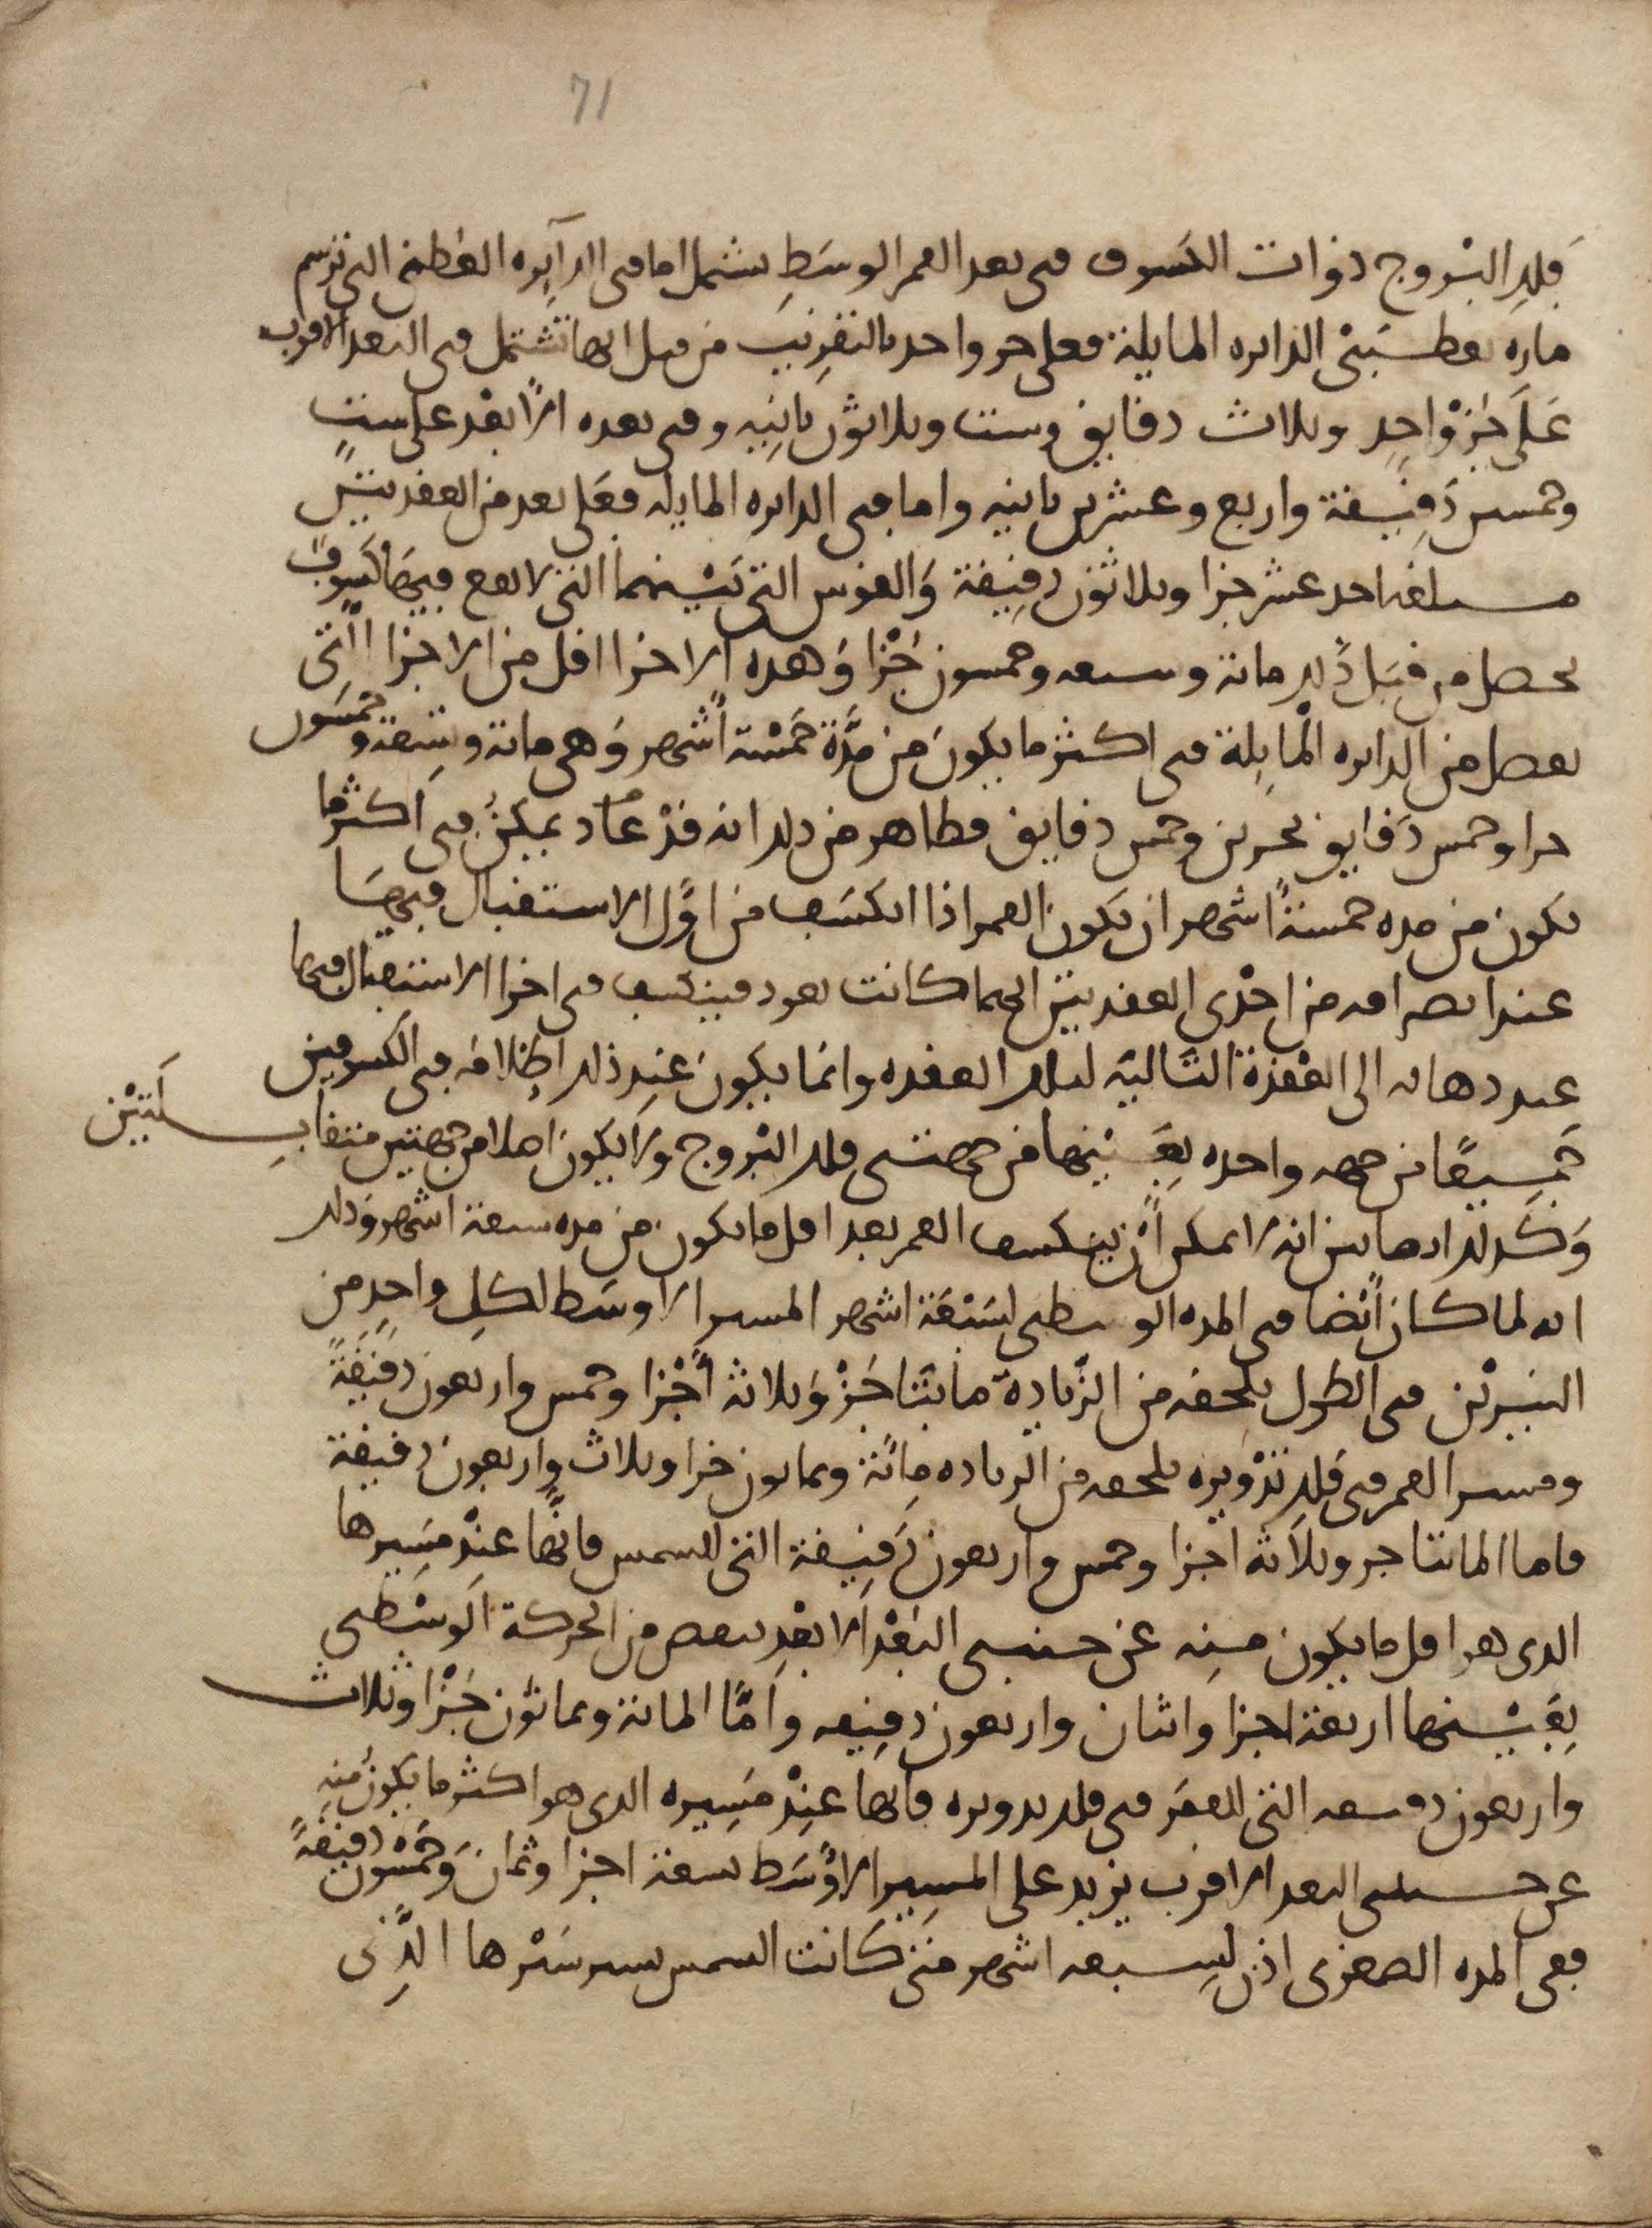 71
فلك البروج ذوات الكسوف فى بعد القمر الوسط يشتمل اما فى الدآيره العظمى التى ترسم
ماره بقطبىْ الدايره المايلة فعلى جز واحد بالتقريب من قبل انها تشتمل فى البعد الاقرب
على جزْ واحد وثلاث دقايق وست وثلاثون ثانيه وفى بعده الابعد على ست
وخمسين دقيقة واربع وعشرين ثانيه واما فى الدايره المايله فعلى بعد من العقدتين
مبلغه احد عشر جزا وثلاثون دقيقة والقوس التى بينهما التى لا يقع فيها كسوف
يحصل من قبل ذلك مائة وسبعه وخمسون جُزْا وَهذه الاجزا اقل من الاجزا التى
تفصل من الدايره المايلة فى اكثر ما يكون من مدّة خمسة أشهر وَهى مائة وتسعة وخمسون
جزا وخمس دقايق بجزين وخمس دقايق فظاهر من ذلك انه قدْ عاد يمكن فى اكثر ما
يكون من مده خمسة اشهر ان يكون القمر اذا انكسف من اوّل الاستقبال فيها
عند انصرافه من احدى العقدتين ايهما كانت يعود فينكسف فى اخر الاستقبال فيها
عند ذهابه الى العقدة التّاليه لتلك العقده وانما يكون عند ذلك اظلامه فى الكسوفين
جميعًا من جهه واحده بعينها من جهتى فلك البروج ولا يكون اصلا من جهتين متقابلتين
وَكذلك ايضا نبين انه لا يمكن أن ينكسف القمر بعد اقل ما يكون من مده سبعة اشهر وَذلك
انه لما كان أيضا فى المده الوسطى لسَبْعَة اشهر المسير الاوسط لكلِ واحدٍ من
النيرين فى الطول يلحقه من الزّيادة مايتا جزْ وَثلاثه أجزا وخمس واربعون دقيقةً
ومسير القمر فى فلك تدْويره يلحقه من الزياده مائة وثمانون جزا وثلاث واربعون دقيقة
فاما المائتا جز وثلاثه اجزا وخمس واربعون دقيقة التى للشمس فانّها عندْ مسيرها
الذى هو اقل ما يكون منه عن جنبى البعْد الابعد ينقص من الحركة الوسْطى
بعينها اربعة اجزا واثنان واربعون دقيقه وامّا المائة وثمانون جزْا وثلاث
واربعون دقيقه التى للقمَر فى فلك تدويره فانها عندْ مسيره الذى هو اكثر ما يكون منه
عن جنبتى البعد الاقرب يزيد على المسير الاوْسَط تسعة اجزا وثمان وَخمسون دقيقةً
ففى المده الصغرى اذن لسبعه اشهر متى كانت الشمس تسير سيرها الذى